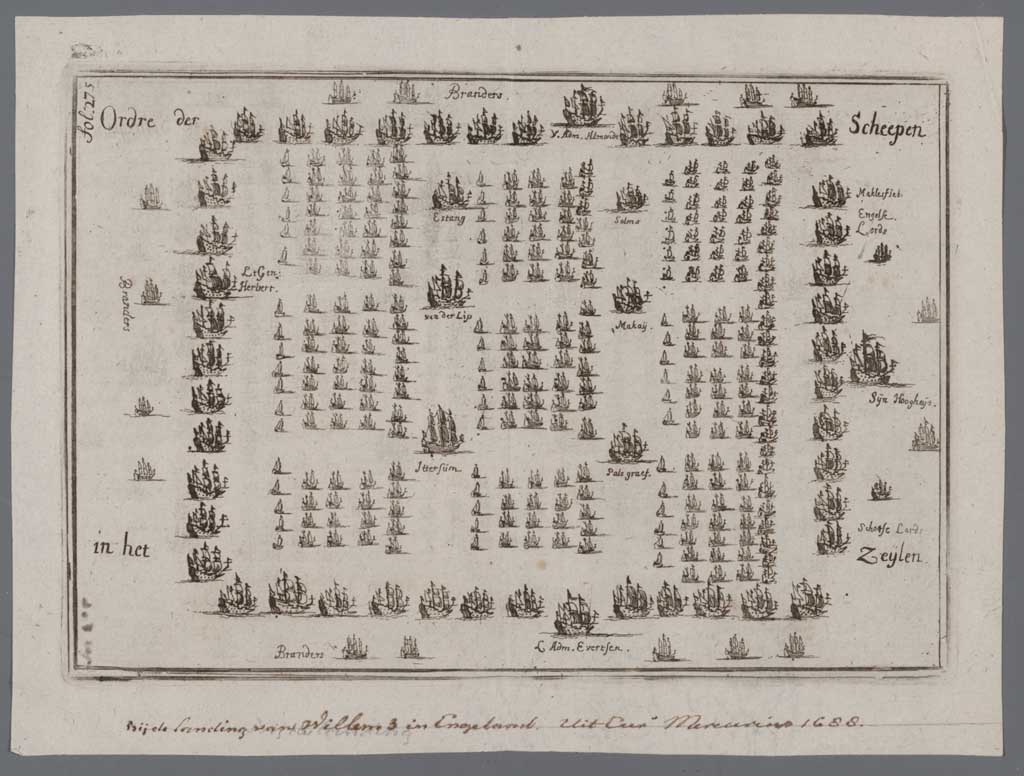 Fol. 275
Branders.
Ordre der Scheepen
V. Adm. Almonde
Maklesfiet.
Engelse.
Lords
Estang
Solms
Lt Gen:
Herbert.
Branders
van der Lip
Makaij.
Sijn Hoogheijt.
Ittersum
Pals graef.
Schotse Lords
in het Zeylen
Branders
L Adm. Evertsen.
bij de landing van Willem 3 in Engeland. Uit Eur. Mercurius 1688.